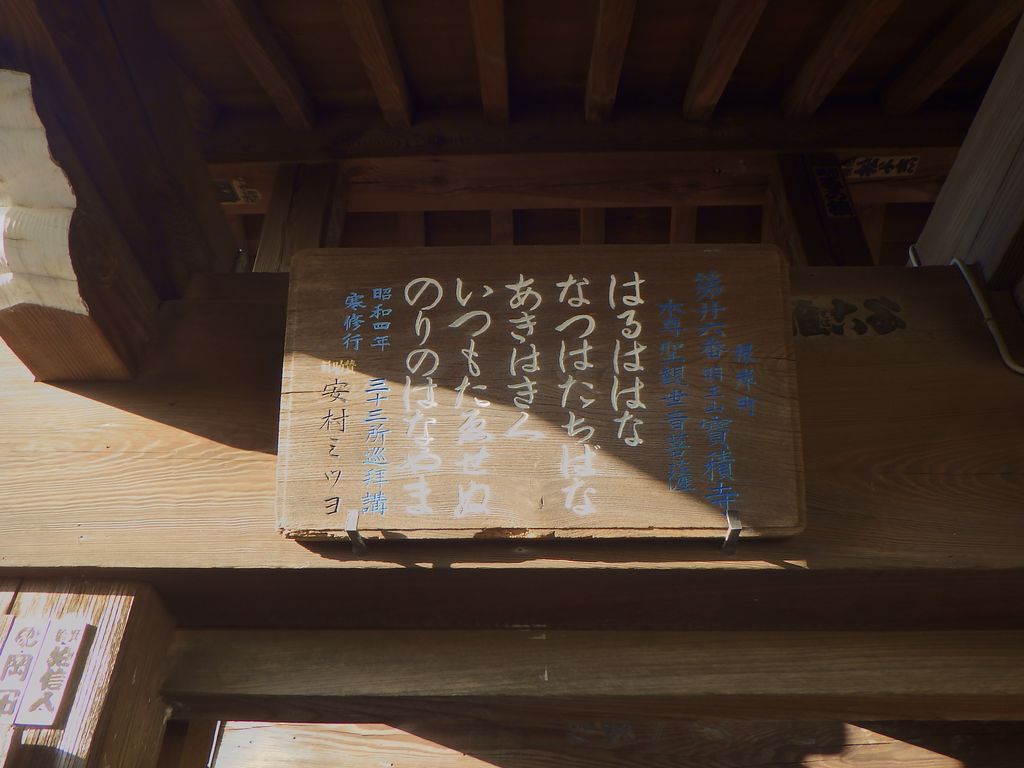 第廾六番 明王山 寶積寺
本尊聖観世音菩薩
はるははな
なつはたちばな
あきはきく
いつもたゑせぬ
のりのはなやま
昭和四年 三十三所巡拝講
寒修行
安村ミツヨ
岡田